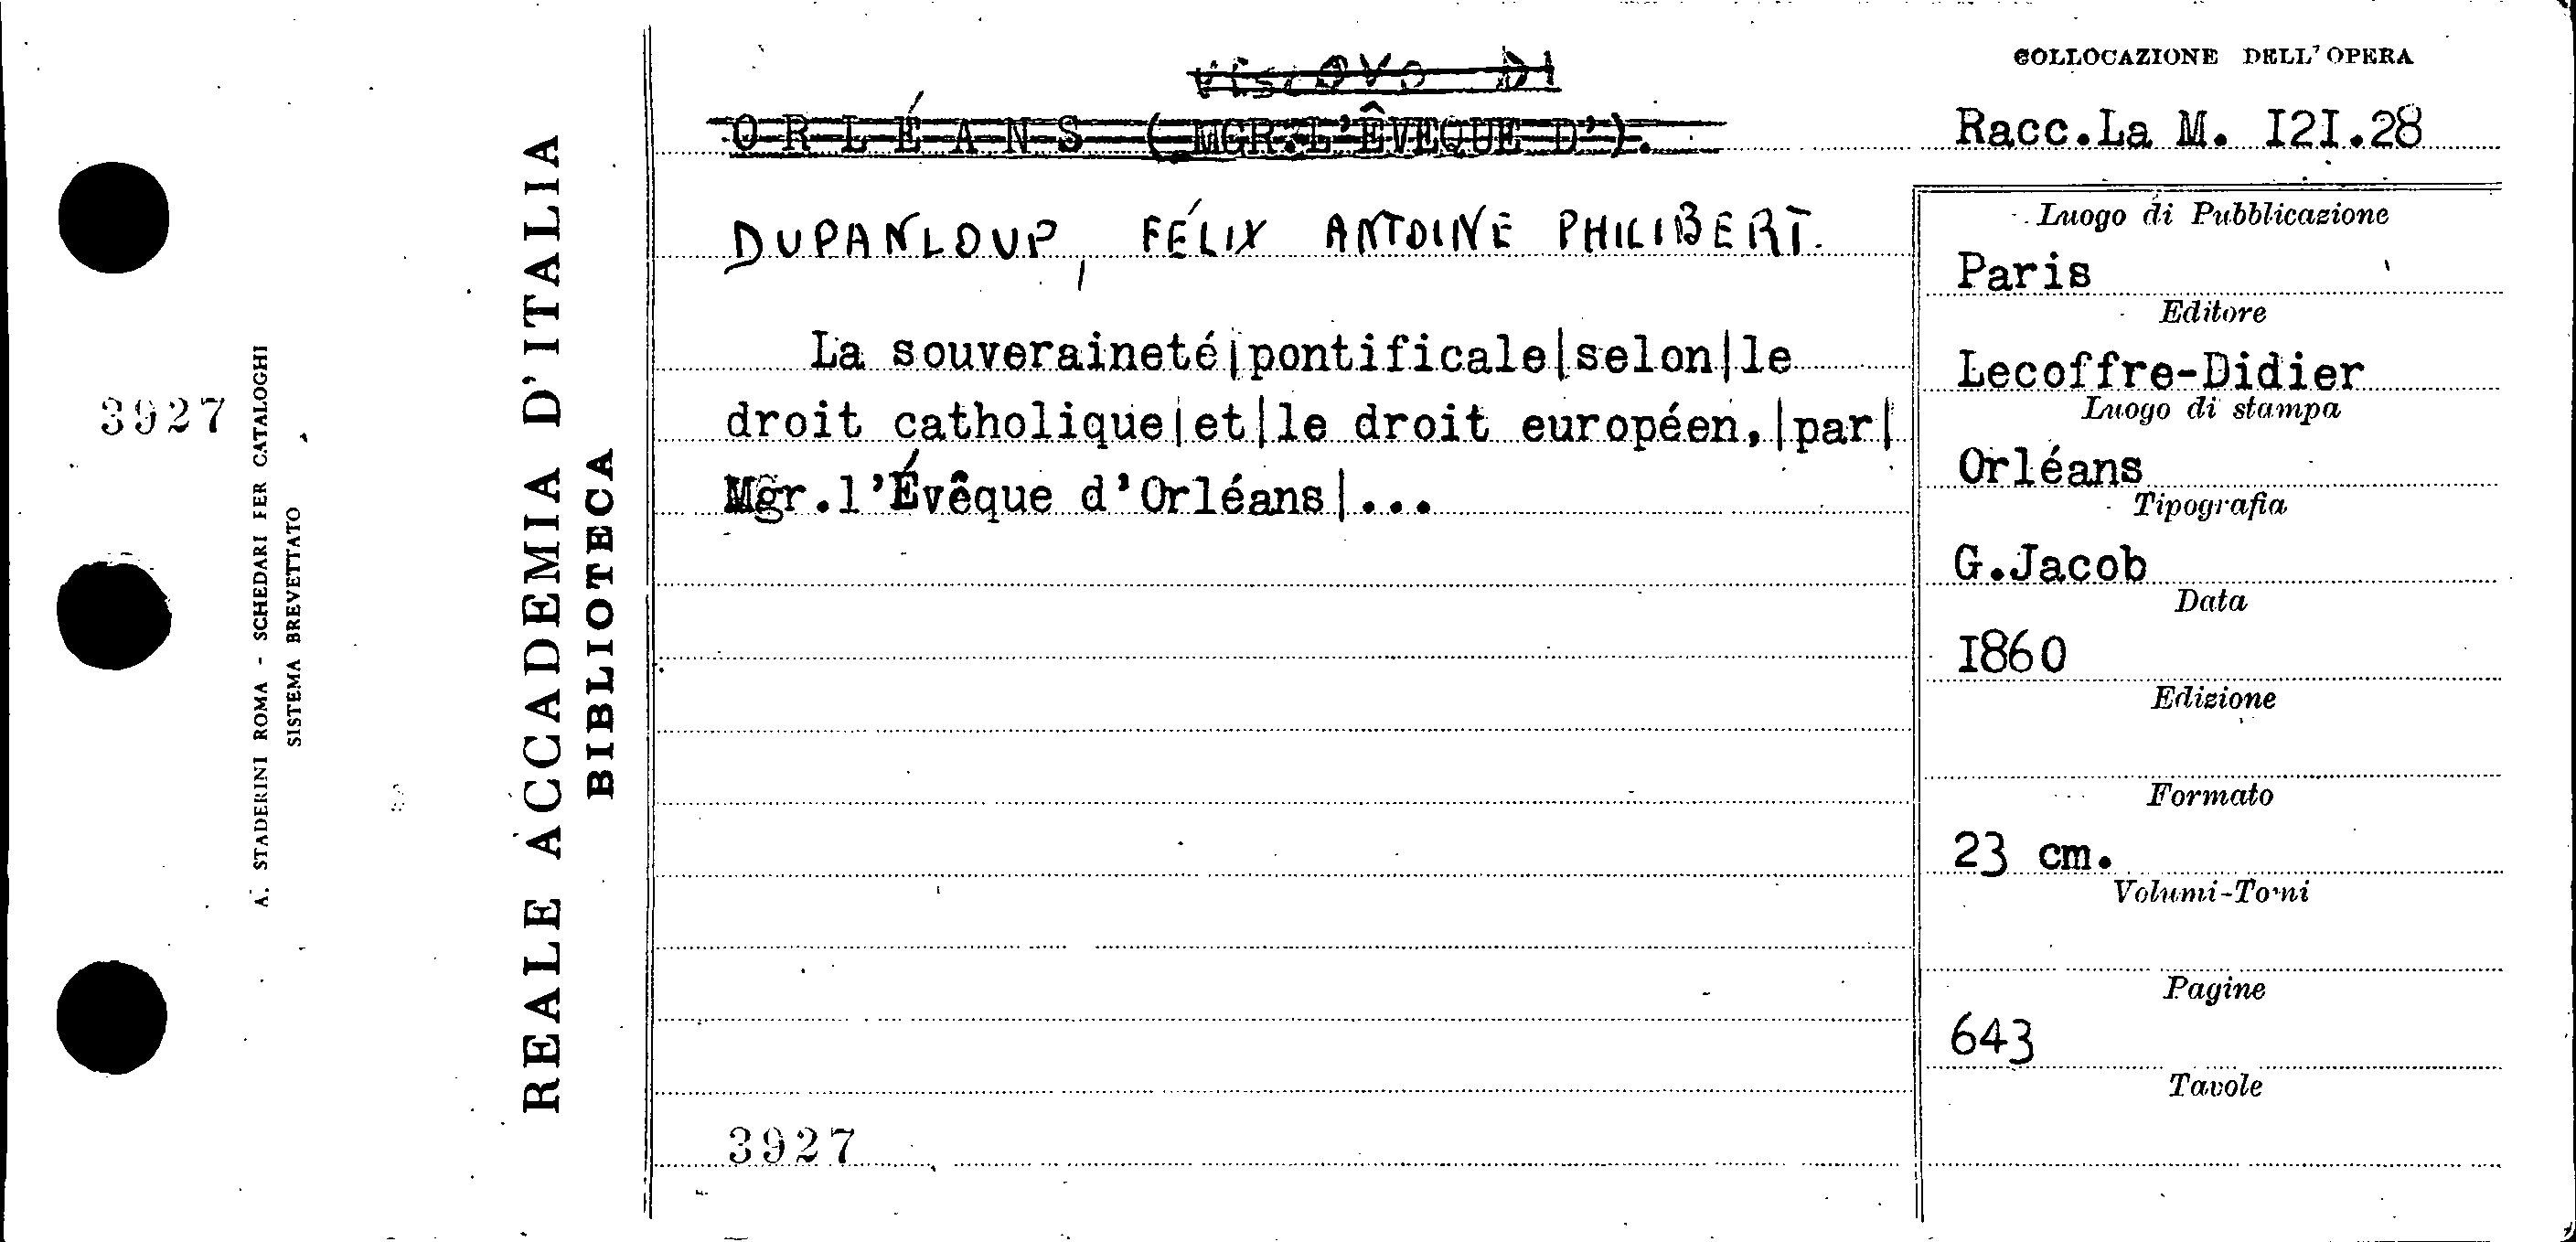 3927
A. STADERINI ROMA - SCHEDARI PER CATALOGHI
SISTEMA BREVETTATO
REALE ACCADEMIA D'ITALIA
BIBLIOTECA
VESCOVO DI
ORLÉANS (MGR.L'ÊVEQUE D').
DUPANLOUP, FÉLIX ANTOINE PHILIBERT.
La souveraineté|pontificale|selon|le
droit catholique|et|le droit européen,|par|
Mgr.l'Évêque d'Orléans|...
3927
COLLOCAZIONE DELL'OPERA
Racc.La M. I2I.28
Luogo di Pubblicazione
Paris
Editore
Lecoffre-Didier
Luogo di stampa
Orléans
Tipografia
G.Jacob
Data
I860
Edizione
Formato
23 cm.
Volumi-Tomi
Pagine
643
Tavole